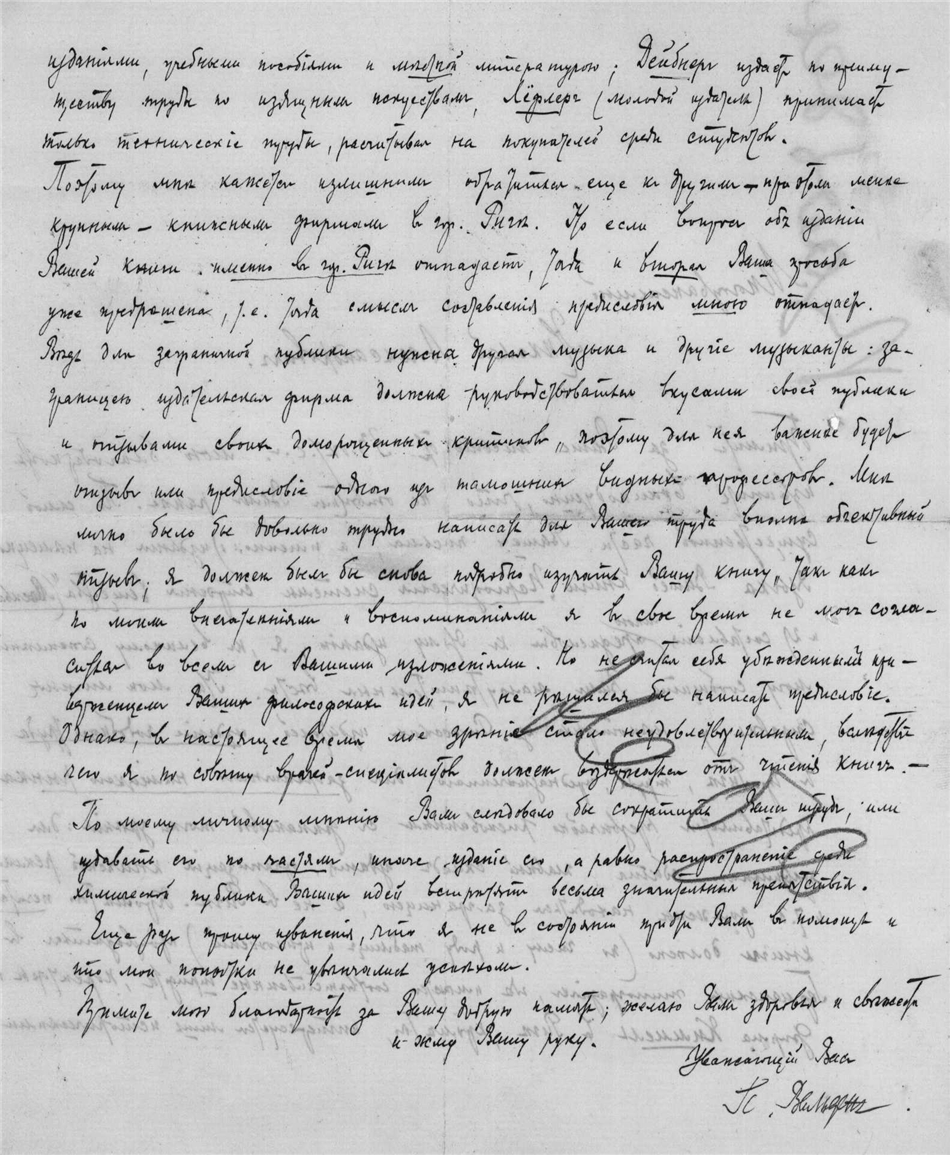 изданіями, учебными пособіями и мѣстной литературою; Дейбнеръ издаетъ по преиму-
ществу труды по изящнымъ искуствамъ, Лёфлеръ (молодой издатель) принимаетъ
только техническіе труды, расчитывая на покупателей среди студентовъ.
Поэтому мнѣ кажется излишнимъ обратиться еще къ другимъ – при этомъ менѣе
крупнымъ – книжнымъ фирмамъ въ гор. Ригѣ. Но если вопросъ объ изданіи
Вашей книги именно въ гор. Ригѣ отпадаетъ, тогда и вторая Ваша просьба
уже предрѣшена, т.е. тогда смыслъ составленія предисловія мною отпадаетъ.
Вѣдь для заграничной публики нужна другая музыка и другіе музыканты: за-
границею издательская фирма должна руководствоваться вкусами своей публики
и отзывами своихъ доморощенныхъ критиковъ, поэтому для нея важнѣе будетъ
отзывъ или предисловіе одного изъ тамошнихъ видныхъ профессоровъ. Мнѣ
лично было бы довольно трудно написать для Вашего труда вполнѣ объективный
отзывъ; я долженъ былъ бы снова подробно изучить Вашу книгу, такъ какъ
по моимъ впечатленіямъ и воспоминаніямъ я въ свое время не могъ согла-
ситься во всемъ съ Вашими изложеніями. Но не считая себя убѣжденнымъ при-
верженцемъ Вашихъ философскихъ идей, я не рѣшался бы написать предисловіе.
Однако, въ настоящее время мое зрѣніе стало неудовлетворительнымъ, вслѣдствіе
чего я по совѣту врачей-спеціалистовъ долженъ воздержаться отъ чтенія книгъ. –
По моему личному мнѣнію Вамъ слѣдовало бы сократить Вашъ трудъ, или
издавать его по частямъ, иначе изданіе его, а равно распространеніе среди
химической публики Вашихъ идей встрѣтятъ весьма значительныя препятствія.
Еще разъ прошу извиненія, что я не въ состояніи придти Вамъ въ помощь и
что мои попытки не увѣнчались успѣхомъ.
Примите мою благодарность за Вашу добрую память; желаю Вамъ здоровья и свѣжести
и жму Вашу руку.
Уважающій Васъ
П. Вальденъ.